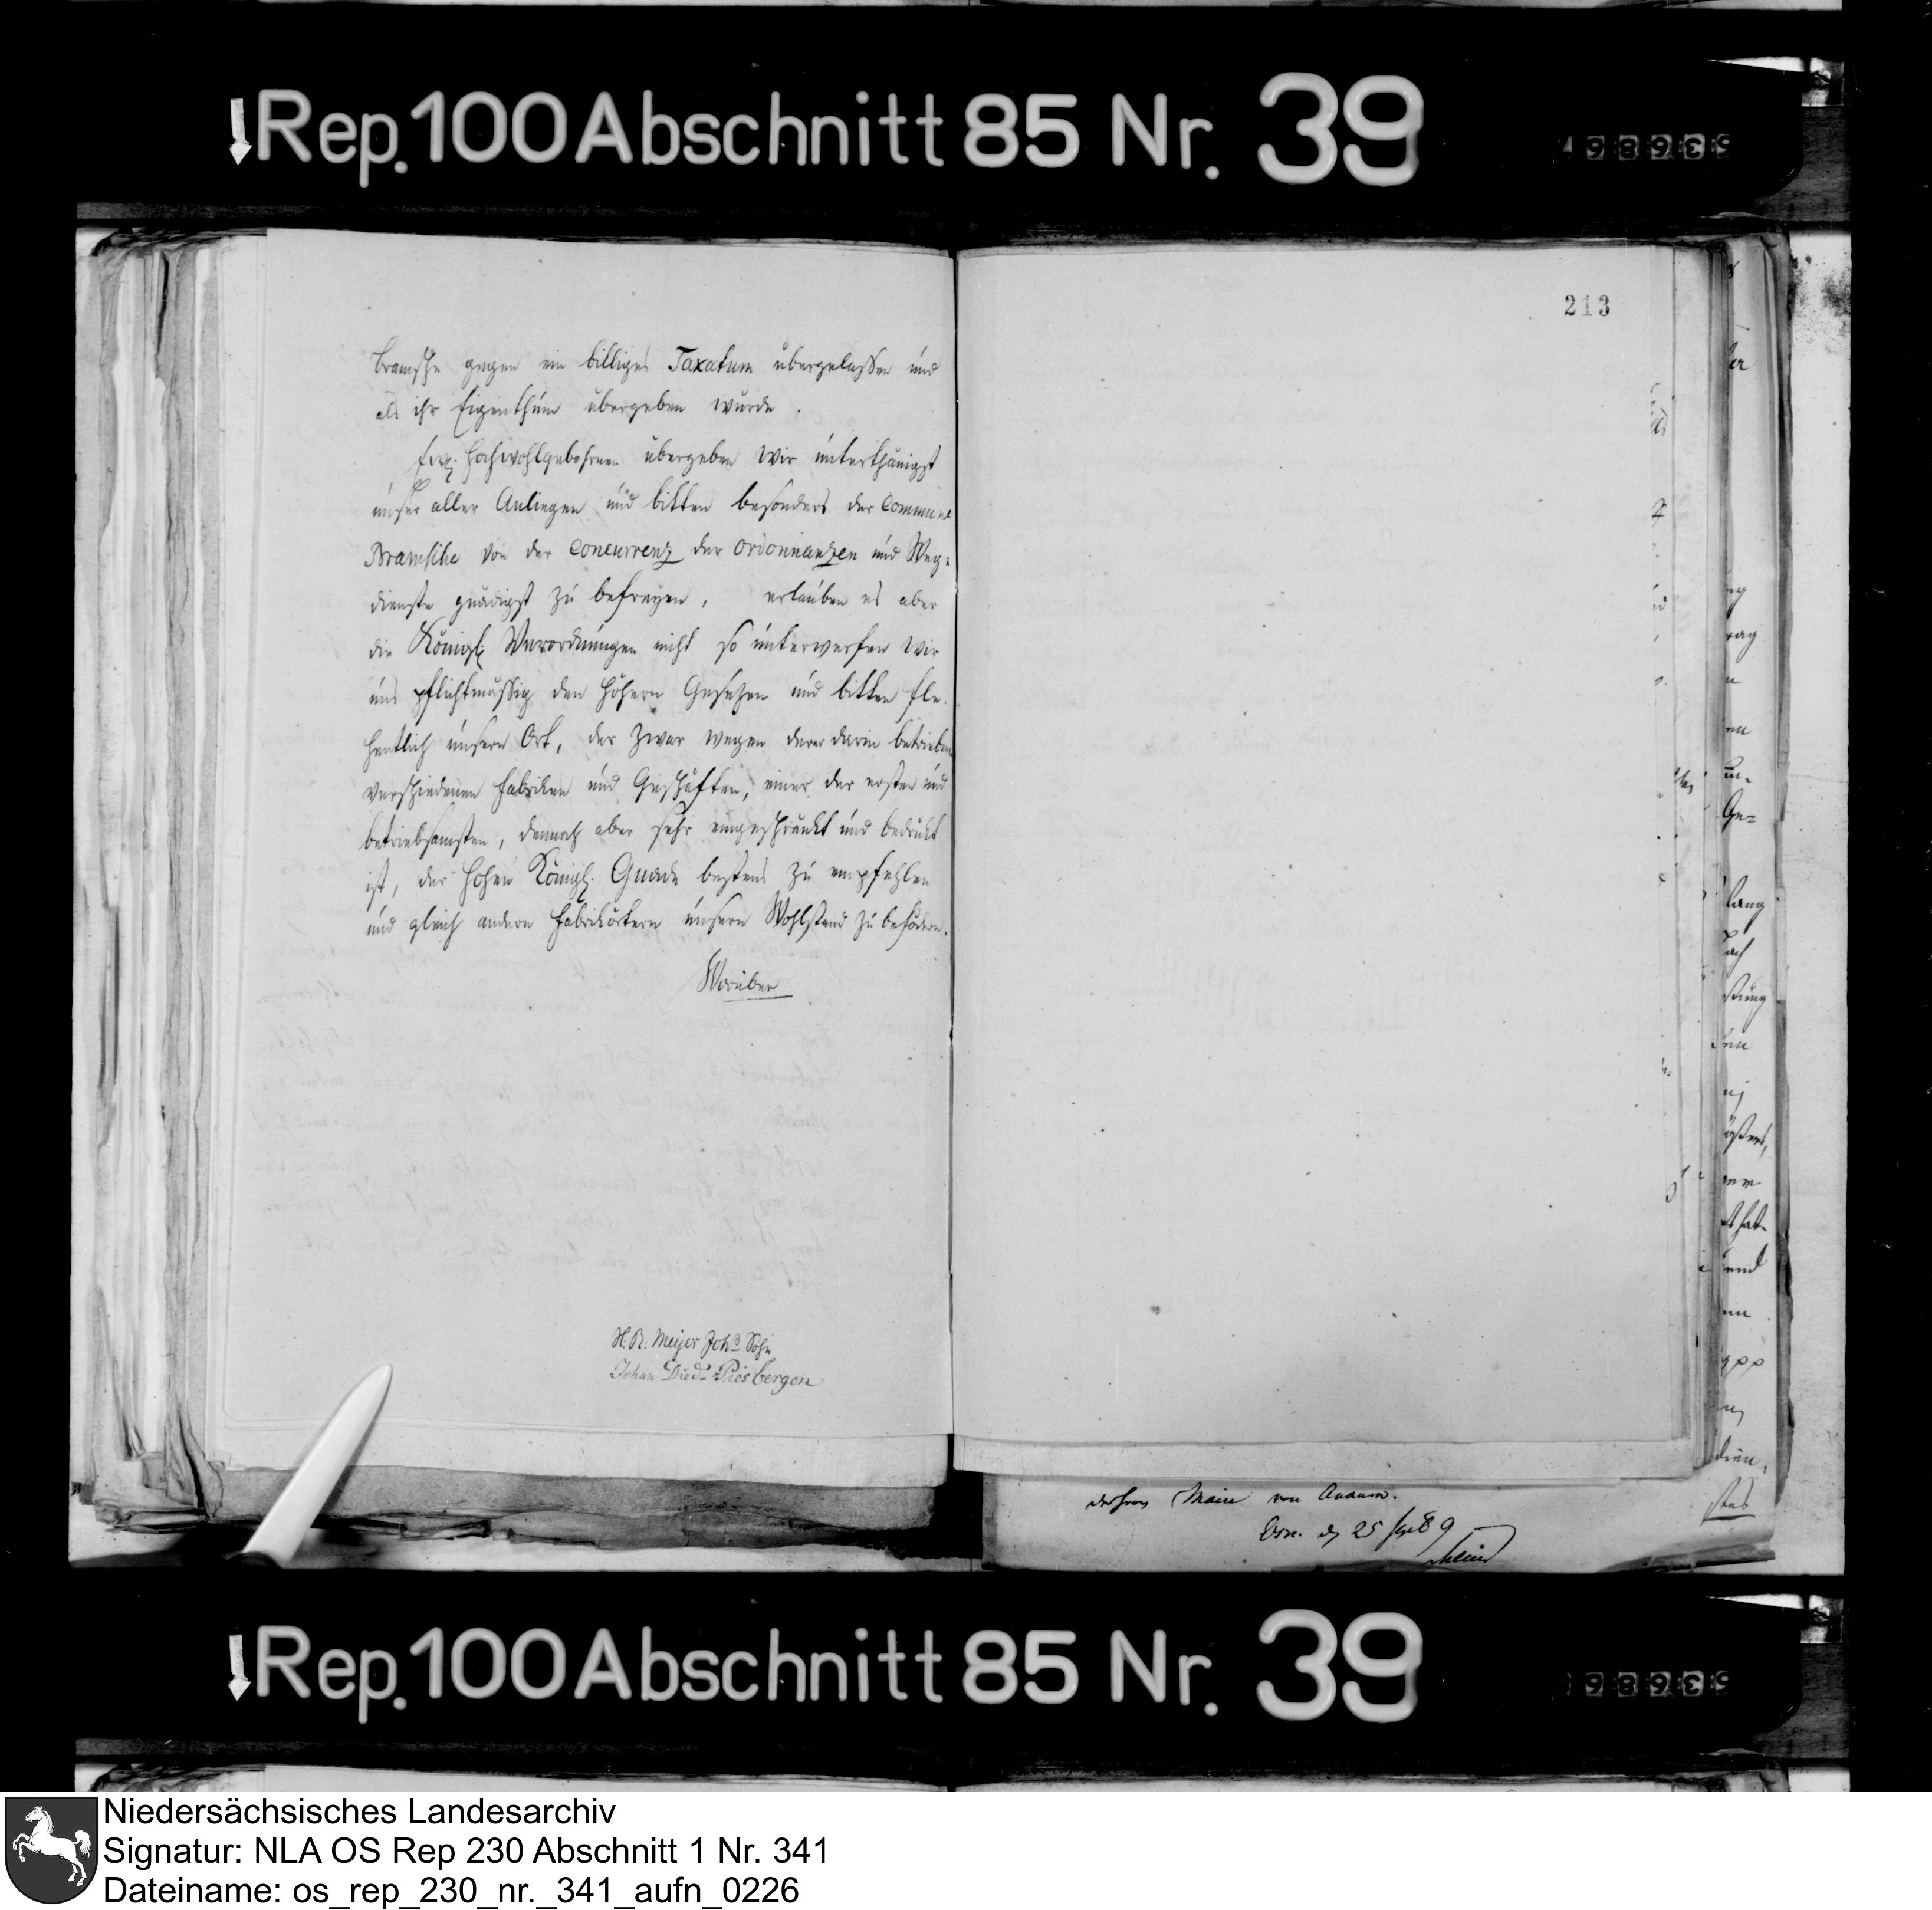 Rep. 100 Abschnitt 85 Nr. 39
213
Bramsche gegen ein billiges Taxatum übergelassen und
als ihr Eigenthum übergeben wurde.
Ew. Hochwohlgebohrnen übergeben wir unterthänigst
unser aller Anliegen und bitten besonders der Commune
Bramsche von der Concurrenz der Ordonnanzen und Weg-
dienste gnädigst zu befreyen, erlauben es aber
die Königl. Verordnungen nicht so unterwerfen wir
uns pflichtmässig den höhern Gesetzen und bitten fle-
hentlich unsern Ort, der zwar wegen derer darin betrieben
verschiedenen Fabriken und Geschäften, einer der ersten und
betriebsamsten, dennoch aber sehr eingeschränkt und bedrückt
ist, der hohen Königl. Gnade bestens zu empfehlen
und gleich andern Fabrikörtern unsern Wohlstand zu befödern.
Worüber
H. R: Meijer Joh. Sohn
Johan Died. Piesbergen
Maire von
Osn. d 25 Sept 89
Rep. 100 Abschnitt 85 Nr. 39
Niedersächsisches Landesarchiv
Signatur: NLA OS Rep 230 Abschnitt 1 Nr. 341
Dateiname: os_rep_230_nr._341_aufn_0226